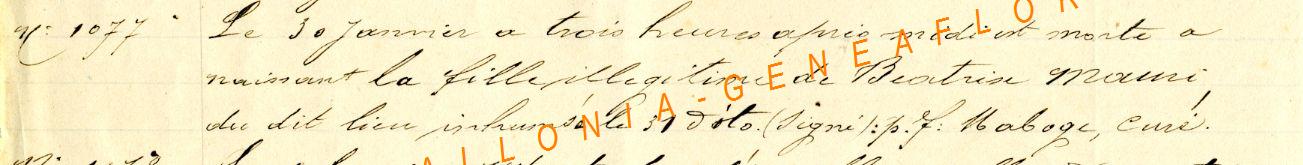 No: 1077 Le 30 Janvier a trois heures après midi est morte a
naissant la fille illegitime de Beatrise Mauri,
du dit lieu inhumée le 31 dito. (Signé): p. f: Maboge, curé.